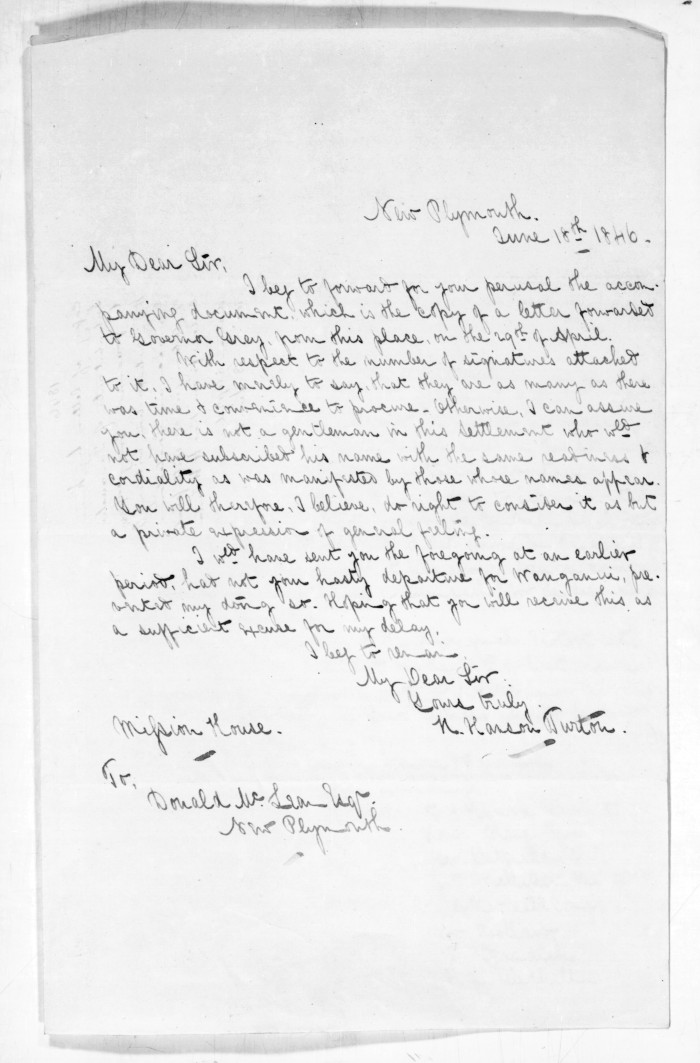 New Plymouth.
June 18th 1846.
My Dear Sir,
I beg to forward for your perusal the accom-
panying document, which is the copy of a letter forwarded
to Governor Grey, from this place, on the 29th of April.
With respect to the number of signatures attached
to it, I have merely to say, that they are as many as there
was time & convenience to procure - Otherwise, I can assure
you, there is not a gentleman in this Settlement who wld
not have subscribed his name with the same readiness &
cordiality as was manifested by those whose names appear.
You will therefore, I believe, do right to consider it as but
a private expression of general feeling.
I wld have sent you the foregoing at an earlier
period, had not your hasty departure for Wanganui, pre-
vented my doing so. Hoping that you will receive this as
a sufficient excuse for my delay,
I beg to remain,
My Dear Sir.
Yours truly.
Mission House.
H. Hanson Turton.
To,
Donald Mc Lean Esqr.
New Plymouth.